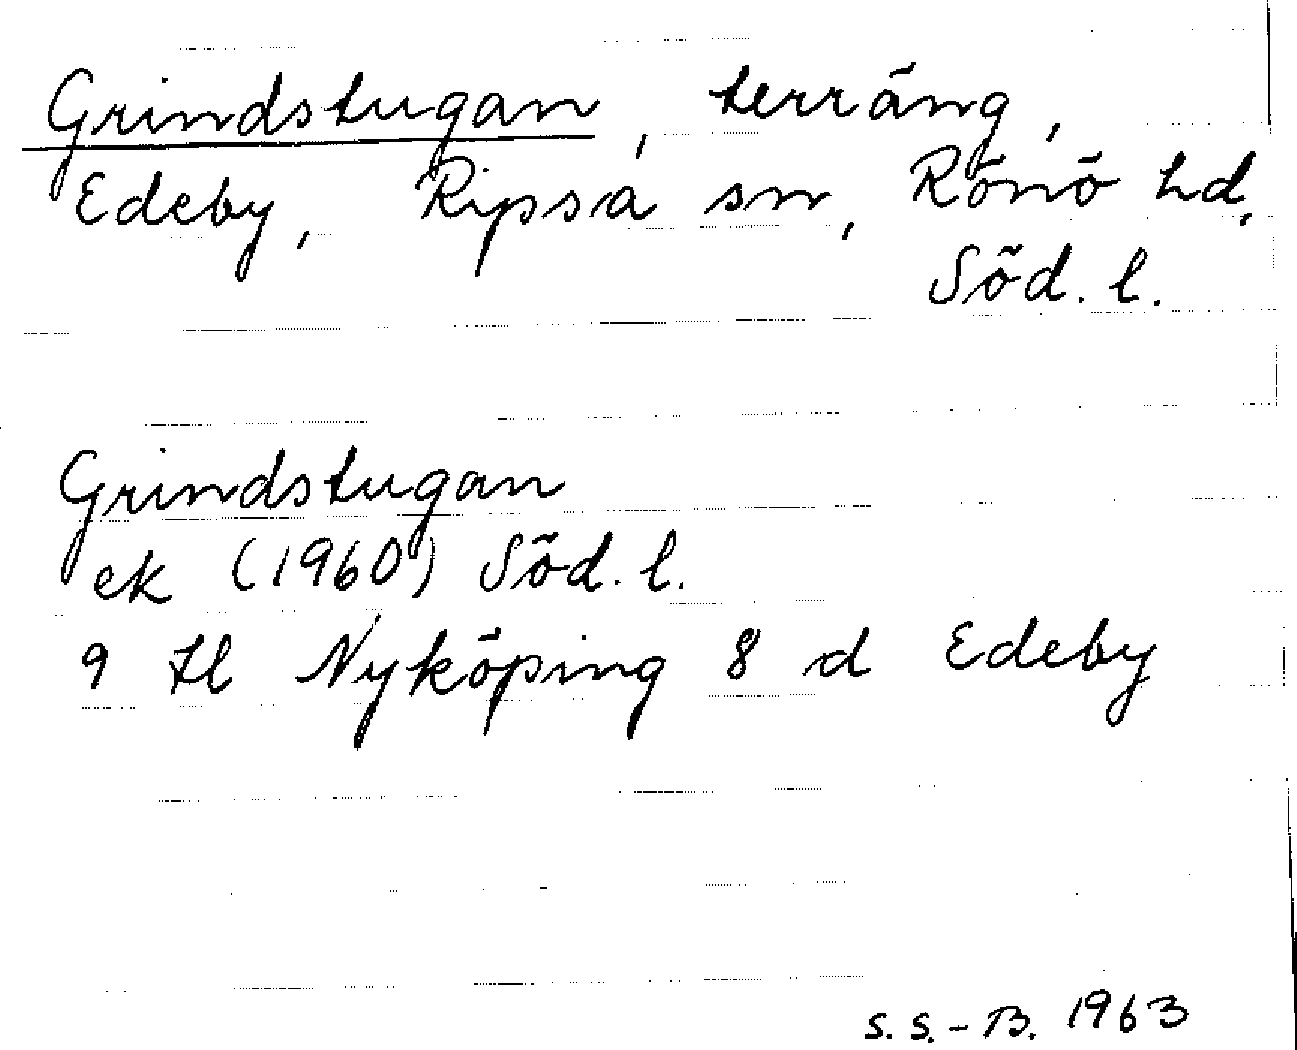 Grindstugan, terräng,
Edeby, Ripsa sn, Rönö hd,
Söd. l.
Grindstugan
ek (1960) Söd. l.
9 H Nyköping 8 d Edeby
S. S.-B. 1963